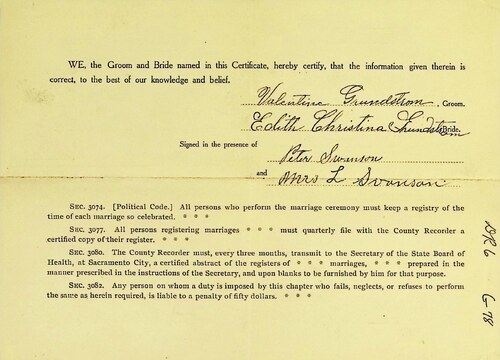 WE, the Groom and Bride named in this Certificate, hereby certify, that the information given therein is
correct, to the best of our knowledge and belief.
Valentine Grundstrom, Groom.
Edith Christina Grundstrom Bride.
Signed in the presence of
Peter Swanson
and Mrs L Swanson
SEC. 3074. [Political Code.] All persons who perform the marriage ceremony must keep a registry of the
time of each marriage so celebrated. * * *
SEC. 3077. All persons registering marriages * * * must quarterly file with the County Recorder a
certified copy of their register. * * *
SEC. 3080. The County Recorder must, every three months, transmit to the Secretary of the State Board of
Health, at Sacramento City, a certified abstract of the registers of * * marriages, * * * prepared in the
manner prescribed in the instructions of the Secretary, and upon blanks to be furnished by him for that purpose.
SEC. 3082. Any person on whom a duty is imposed by this chapter who fails, neglects, or refuses to perform
the same as herein required, is liable to a penalty of fifty dollars. * * *
G-78